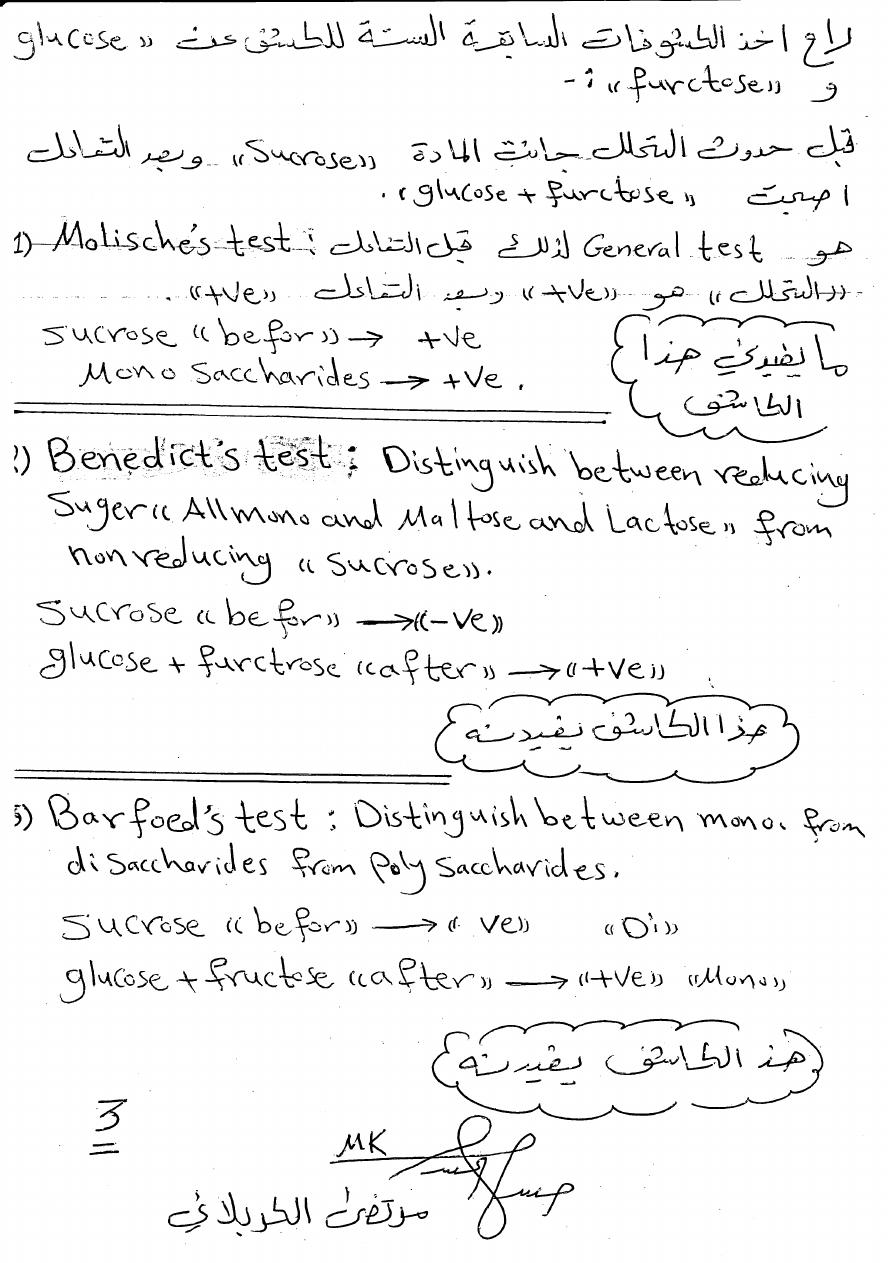 راح اخذ الكشوفات السابقة الستة للكشف عن «glucose
و «furctose» :-
قبل حدوث التحلل جانت المادة «Sucrose» وبعد التفاعل
اصبحت «glucose + furctose».
1) Molische's test : هو General test لذلك قبل التفاعل
«التحلل» هو «+ve» وبعد التفاعل «+ve».
Sucrose «befor» → +ve
Mono Saccharides → +ve.
ما يفيدني هذا
الكاشف
2) Benedict's test : Distinguish between reducing
Suger «All mono and Maltose and Lactose» from
non reducing «Sucrose».
Sucrose «befor» → «-ve»
glucose + furctrose «after» → «+ve»
هذا الكاشف يفيدنه
3) Barfoed's test : Distinguish between mono. from
di Saccharides from Poly Saccharides.
Sucrose «befor» → « ve» «Di»
glucose + fructose «after» → «+ve» «Mono»
هذ الكاشف يفيدنه
3
MK
مرتضى الكربلائي